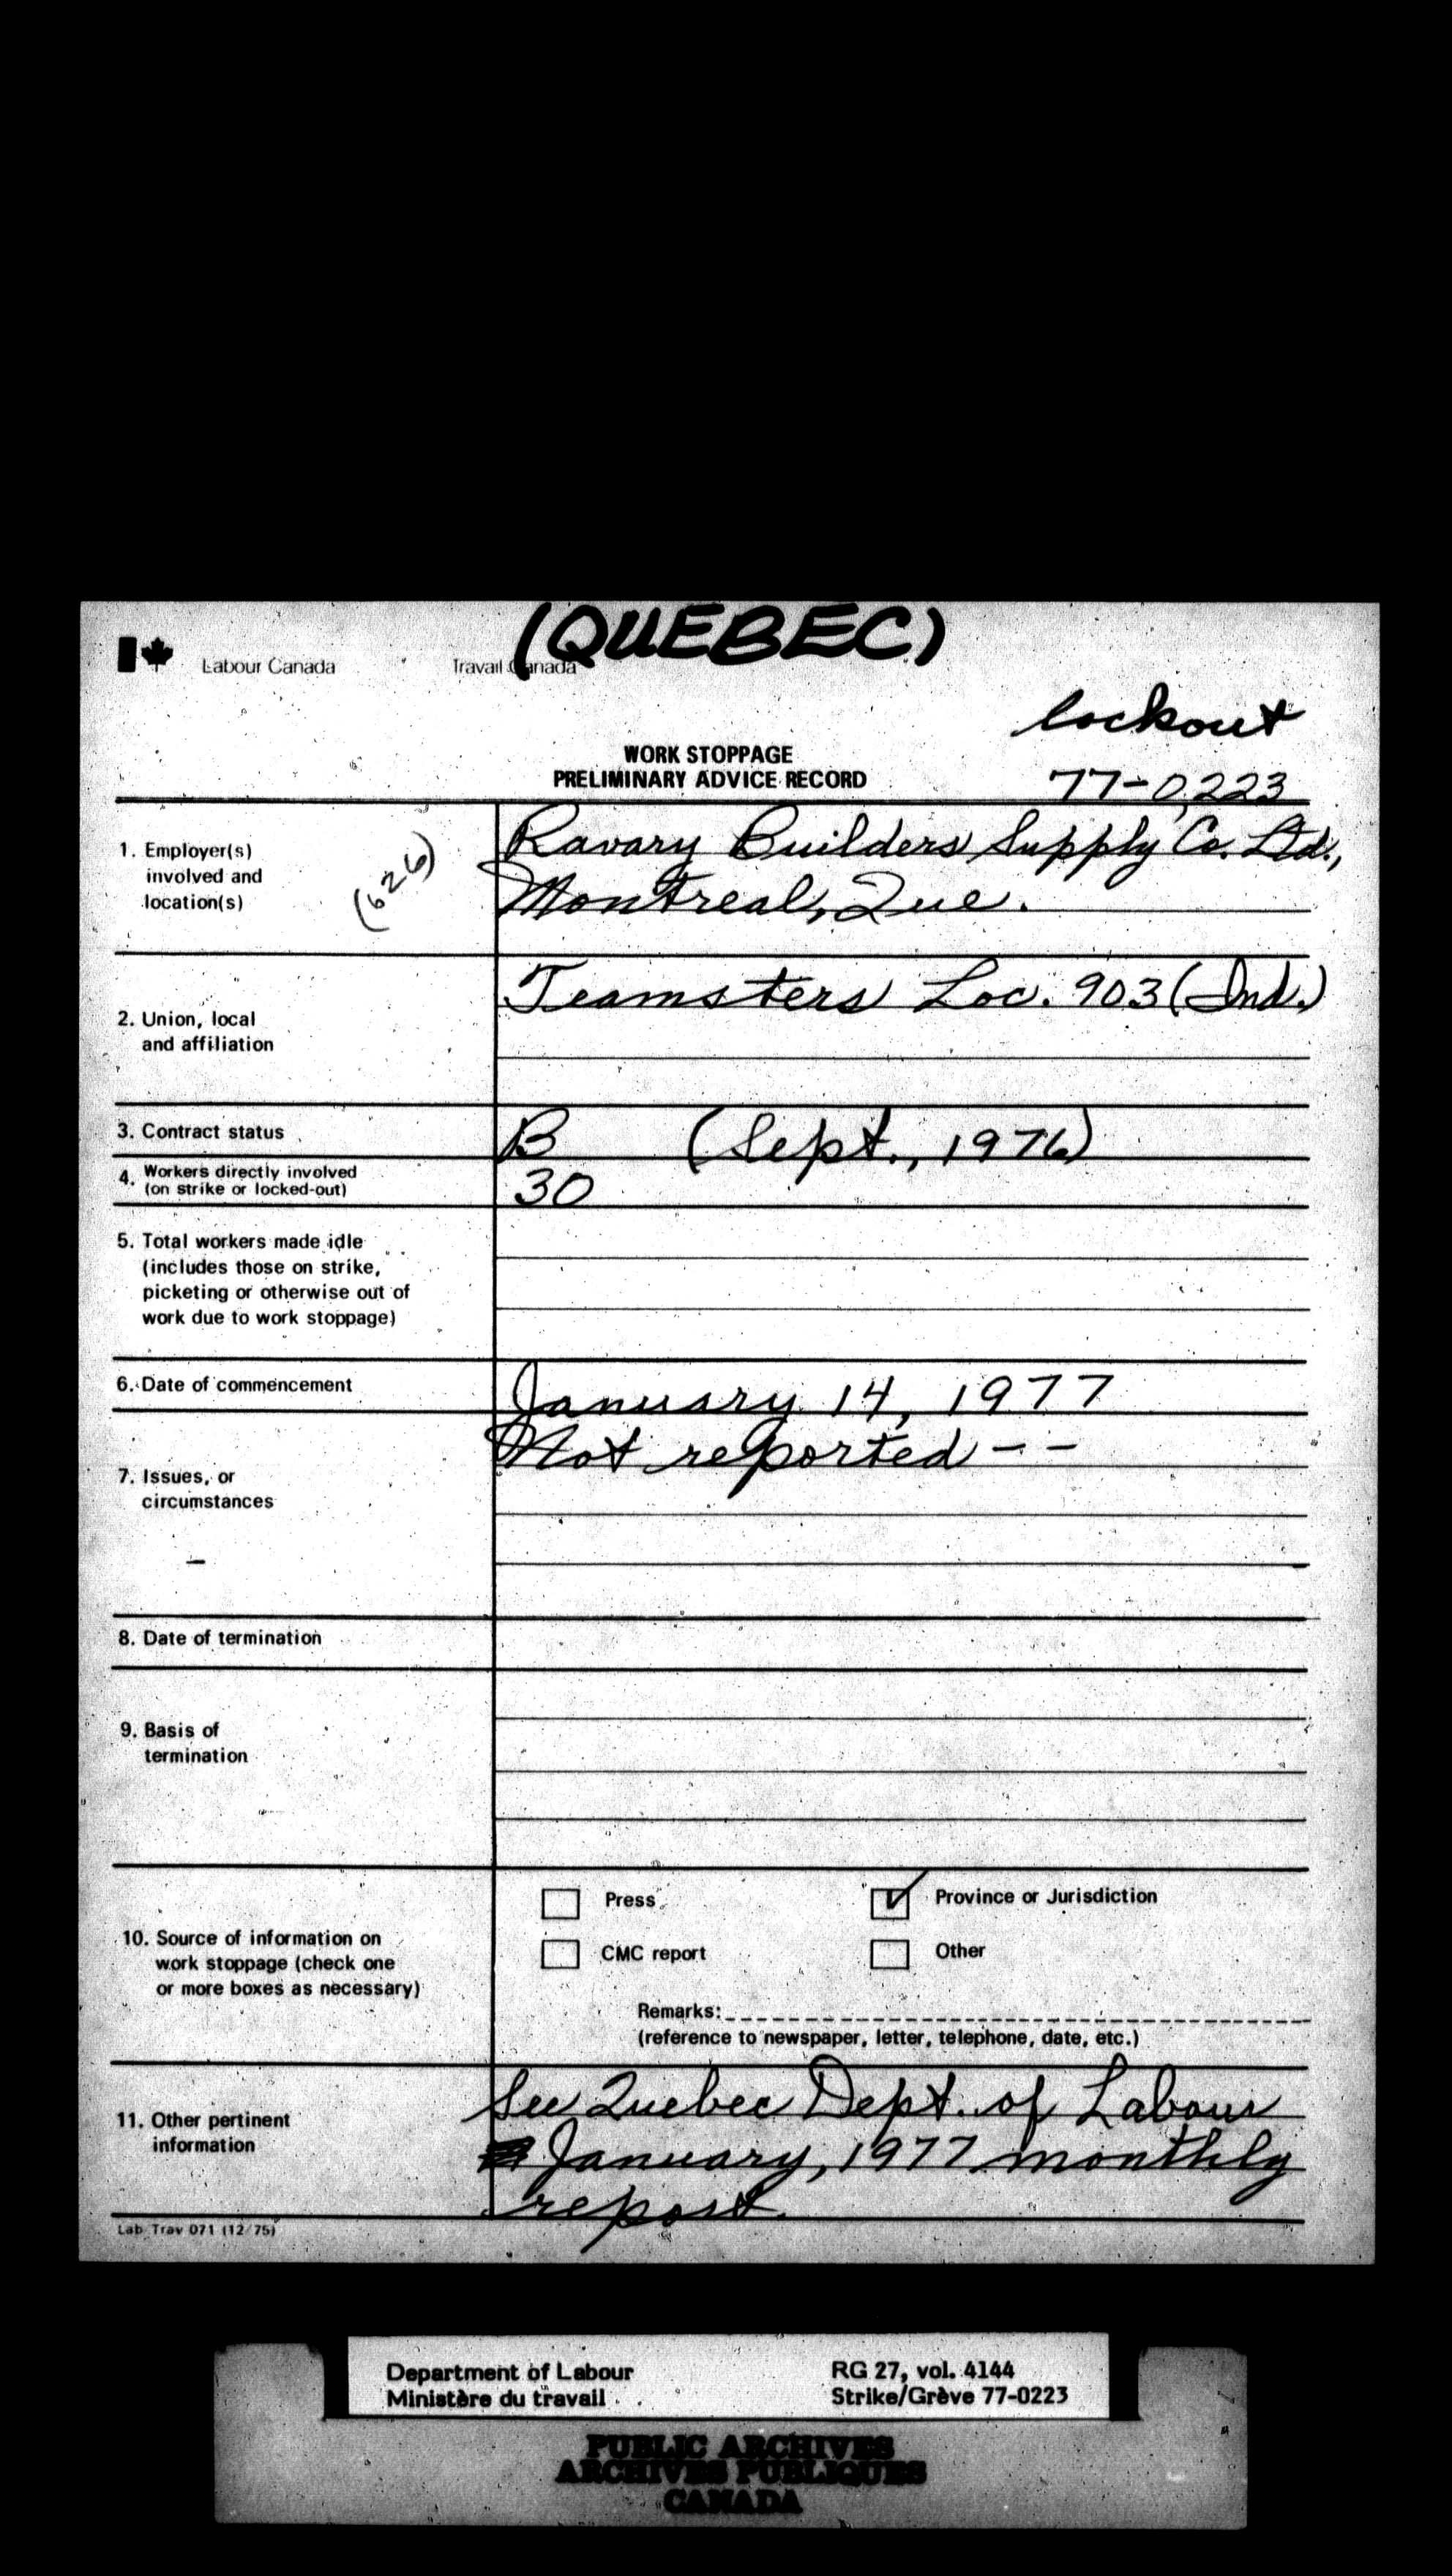 (QUEBEC)
Labour Canada Travail Canada
lockout
WORK STOPPAGE
PRELIMINARY ADVICE RECORD
77-0223
1. Employer(s)
involved and
location(s)
(626)
Ravary Builders Supply Co. Ltd.,
Montreal, Que.
2. Union, local
and affiliation
Teamsters Loc. 903 (Ind.)
3. Contract status
B (Sept., 1976)
4. Workers directly involved
(on strike or locked-out)
30
5. Total workers made idle
(includes those on strike,
picketing or otherwise out of
work due to work stoppage)
6. Date of commencement
January 14, 1977
7. Issues, or
circumstances
Not reported --
8. Date of termination
9. Basis of
termination
10. Source of information on
work stoppage (check one
or more boxes as necessary)
Press
Province or Jurisdiction
CMC report
Other
Remarks:
(reference to newspaper, letter, telephone, date, etc.)
11. Other pertinent
information
See Quebec Dept. of Labour
January, 1977 monthly
report.
Lab Trav 071 (12/75)
Department of Labour
Ministère du travail
RG 27, vol. 4144
Strike/Grève 77-0223
PUBLIC ARCHIVES
ARCHIVES PUBLIQUES
CANADA